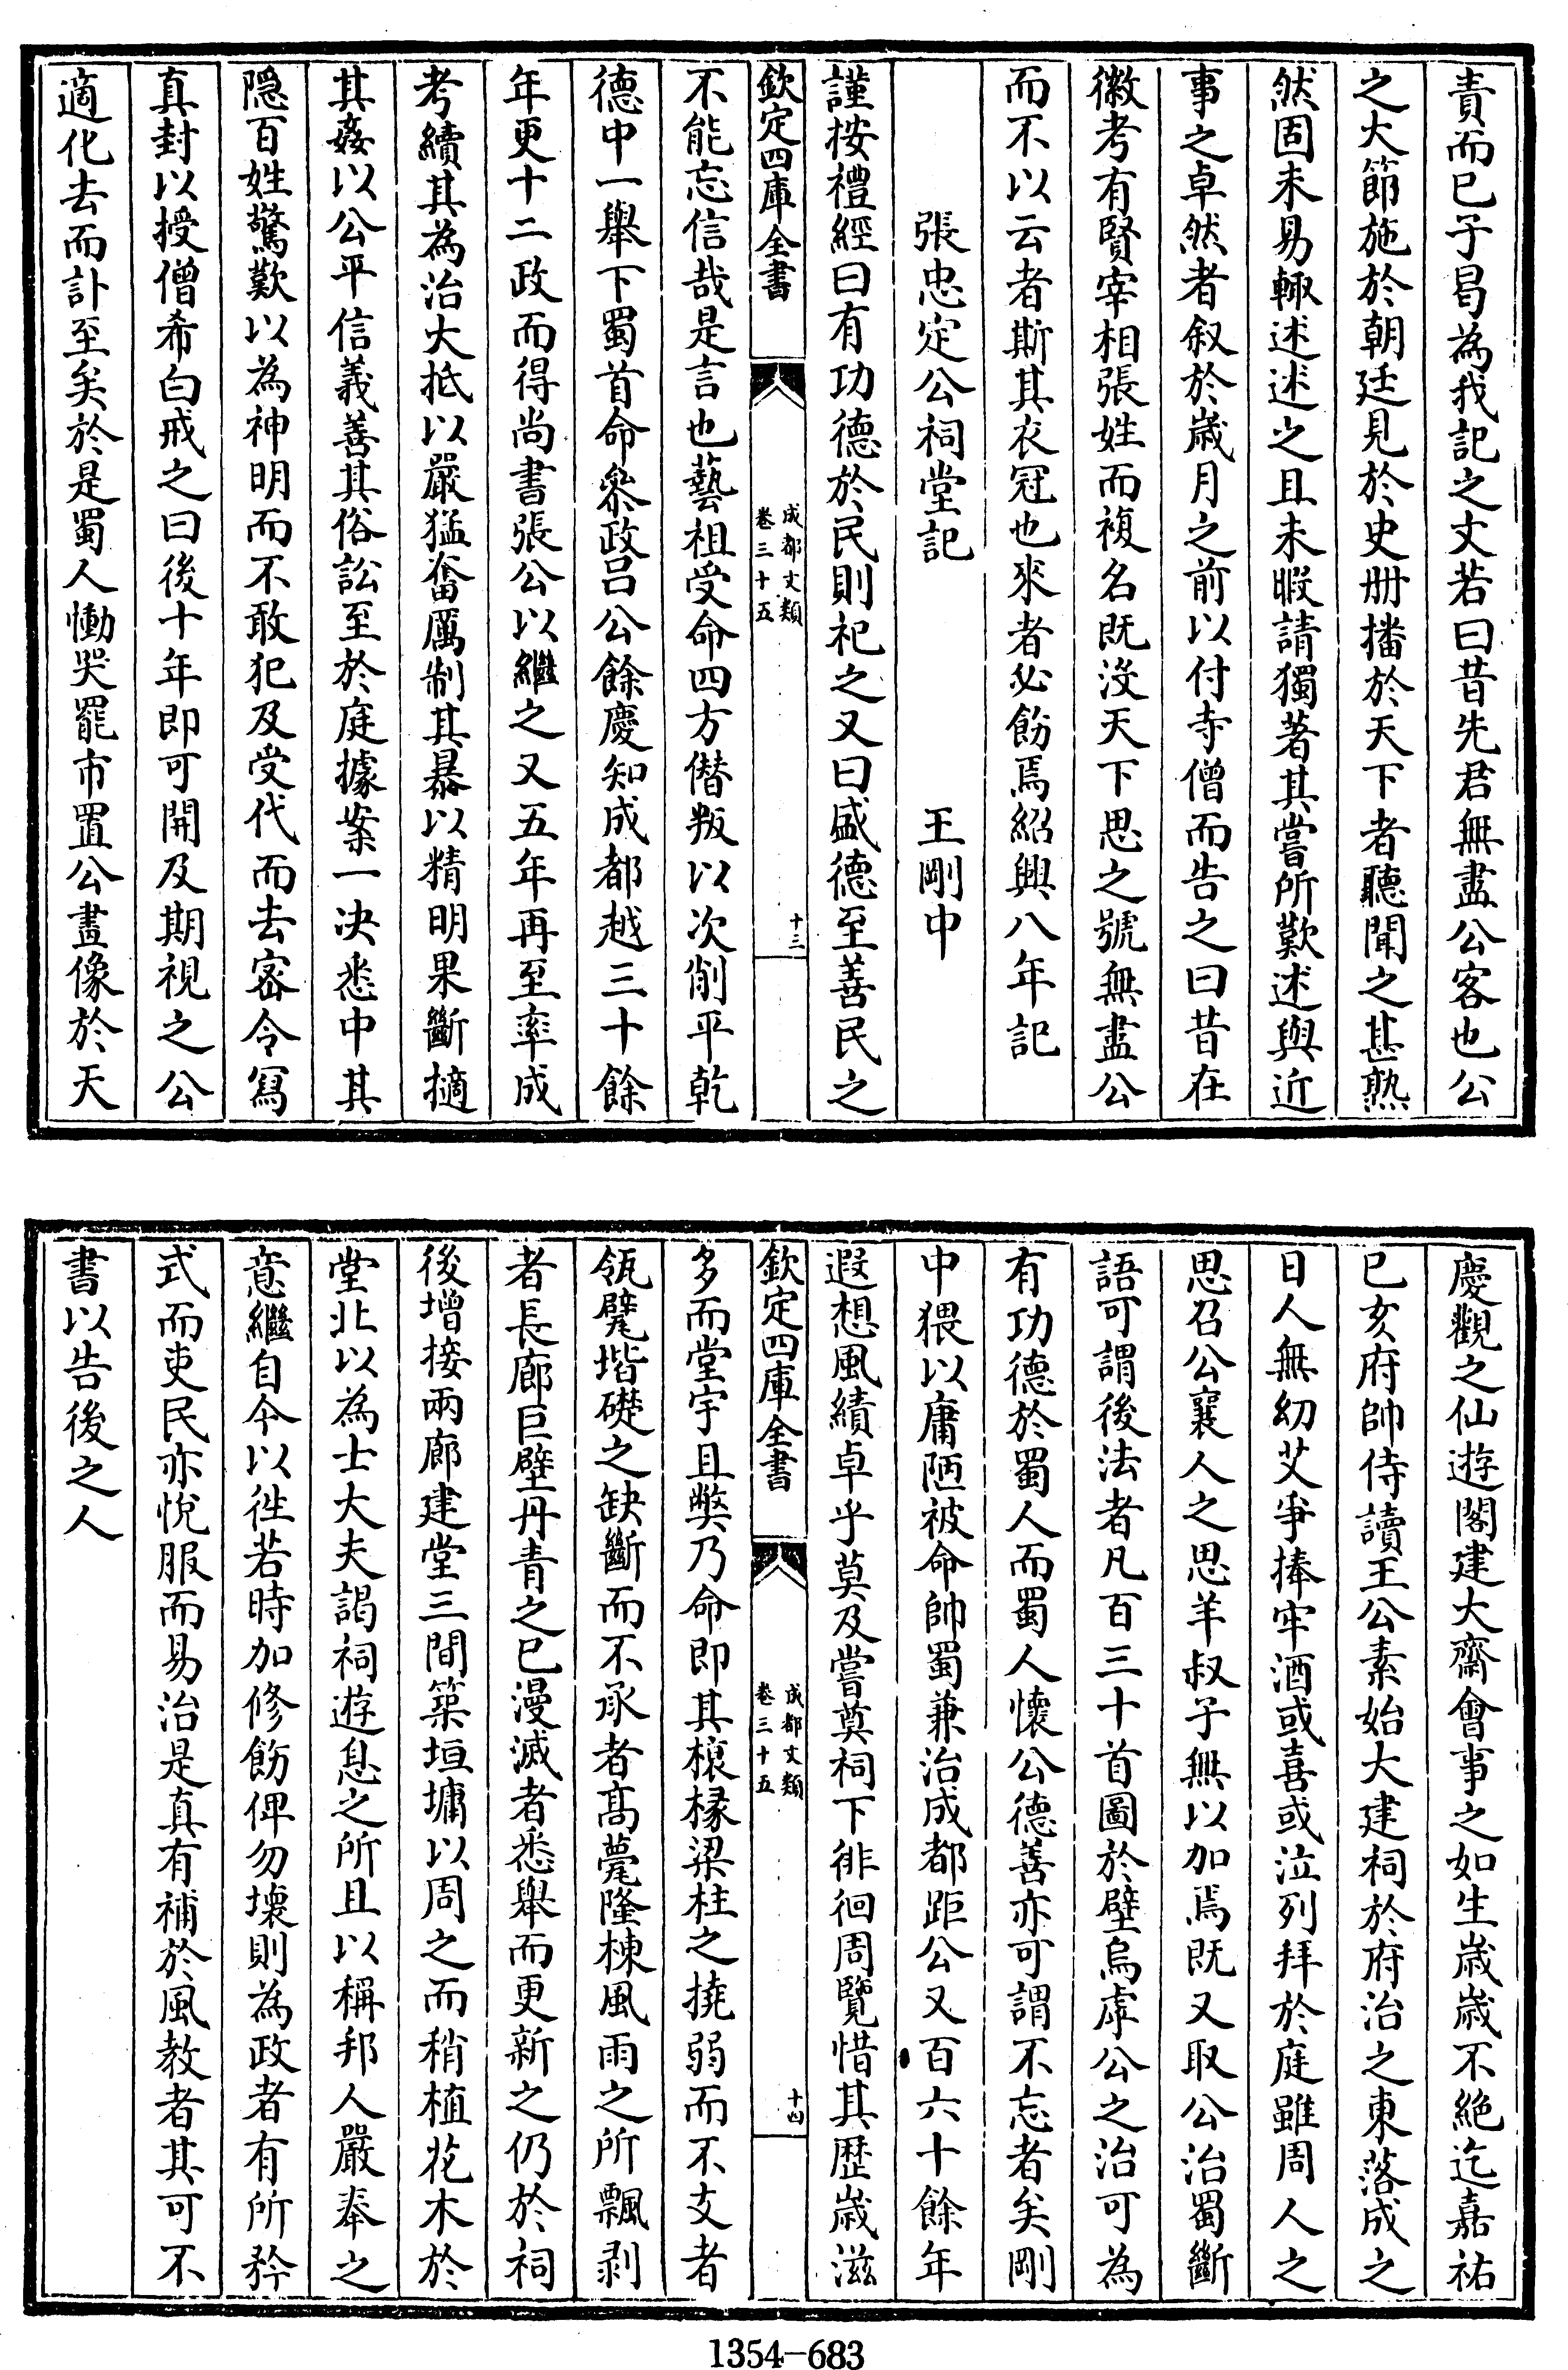 責而已子曷為我記之丈若曰昔先君無盡公客也公
之大節施於朝廷見於史冊播於天下者聽聞之甚熟
然固未易輙述述之且未暇請獨著其嘗所歎述與近
事之卓然者叙於歲月之前以付寺僧而告之曰昔在
徽考有賢宰相張姓而複名既沒天下思之號無盡公
而不以云者斯其衣冠也來者必飭焉紹興八年記
張忠定公祠堂記 王剛中
謹按禮經曰有功德於民則祀之又曰盛德至善民之
欽定四庫全書
成都文類
卷三十五
十三
不能忘信哉是言也藝祖受命四方僭叛以次削平乾
德中一舉下蜀首命叅政呂公餘慶知成都越三十餘
年更十二政而得尚書張公以繼之又五年再至率成
考績其為治大抵以嚴猛奮厲制其暴以精明果斷擿
其姦以公平信義善其俗訟至於庭據案一决悉中其
隱百姓驚歎以為神明而不敢犯及受代而去密令寫
真封以授僧希白戒之曰後十年即可開及期視之公
適化去而訃至矣於是蜀人慟哭罷市置公畫像於天
慶觀之仙遊閣建大齋會事之如生歲歲不絕迄嘉祐
已亥府帥侍讀王公素始大建祠於府治之東落成之
日人無幼艾爭捧牢酒或喜或泣列拜於庭雖周人之
思召公襄人之思羊叔子無以加焉既又取公治蜀斷
語可謂後法者凡百三十首圖於壁烏虖公之治可為
有功德於蜀人而蜀人懷公德善亦可謂不忘者矣剛
中猥以庸陋被命帥蜀兼治成都距公又百六十餘年
遐想風績卓乎莫及嘗奠祠下徘徊周覽惜其歷歲滋
欽定四庫全書
成都文類
卷三十五
十四
多而堂宇且弊乃命即其榱椽梁柱之撓弱而不支者
瓴甓堦礎之缺斷而不承者高甍隆棟風雨之所飄剥
者長廊巨壁丹青之已漫滅者悉舉而更新之仍於祠
後增接兩廊建堂三間築垣墉以周之而稍植花木於
堂北以為士大夫謁祠遊息之所且以稱邦人嚴奉之
意繼自今以徃若時加修飭俾勿壞則為政者有所矜
式而吏民亦悅服而易治是真有補於風教者其可不
書以告後之人
1354-683